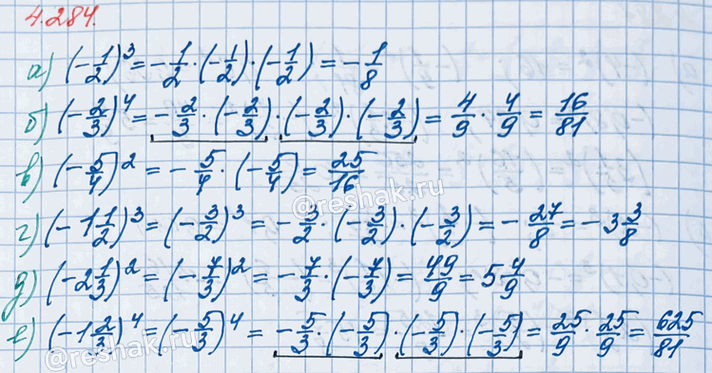 4.284.
а) (-1/2)³ = -1/2 · (-1/2) · (-1/2) = -1/8
б) (-2/3)⁴ = -2/3 · (-2/3) · (-2/3) · (-2/3) = 4/9 · 4/9 = 16/81
в) (-5/4)² = -5/4 · (-5/4) = 25/16
г) (-1 1/2)³ = (-3/2)³ = -3/2 · (-3/2) · (-3/2) = -27/8 = -3 3/8
д) (-2 1/3)² = (-7/3)² = -7/3 · (-7/3) = 49/9 = 5 4/9
е) (-1 2/3)⁴ = (-5/3)⁴ = -5/3 · (-5/3) · (-5/3) · (-5/3) = 25/9 · 25/9 = 625/81
@reshak.ru
@reshak.ru